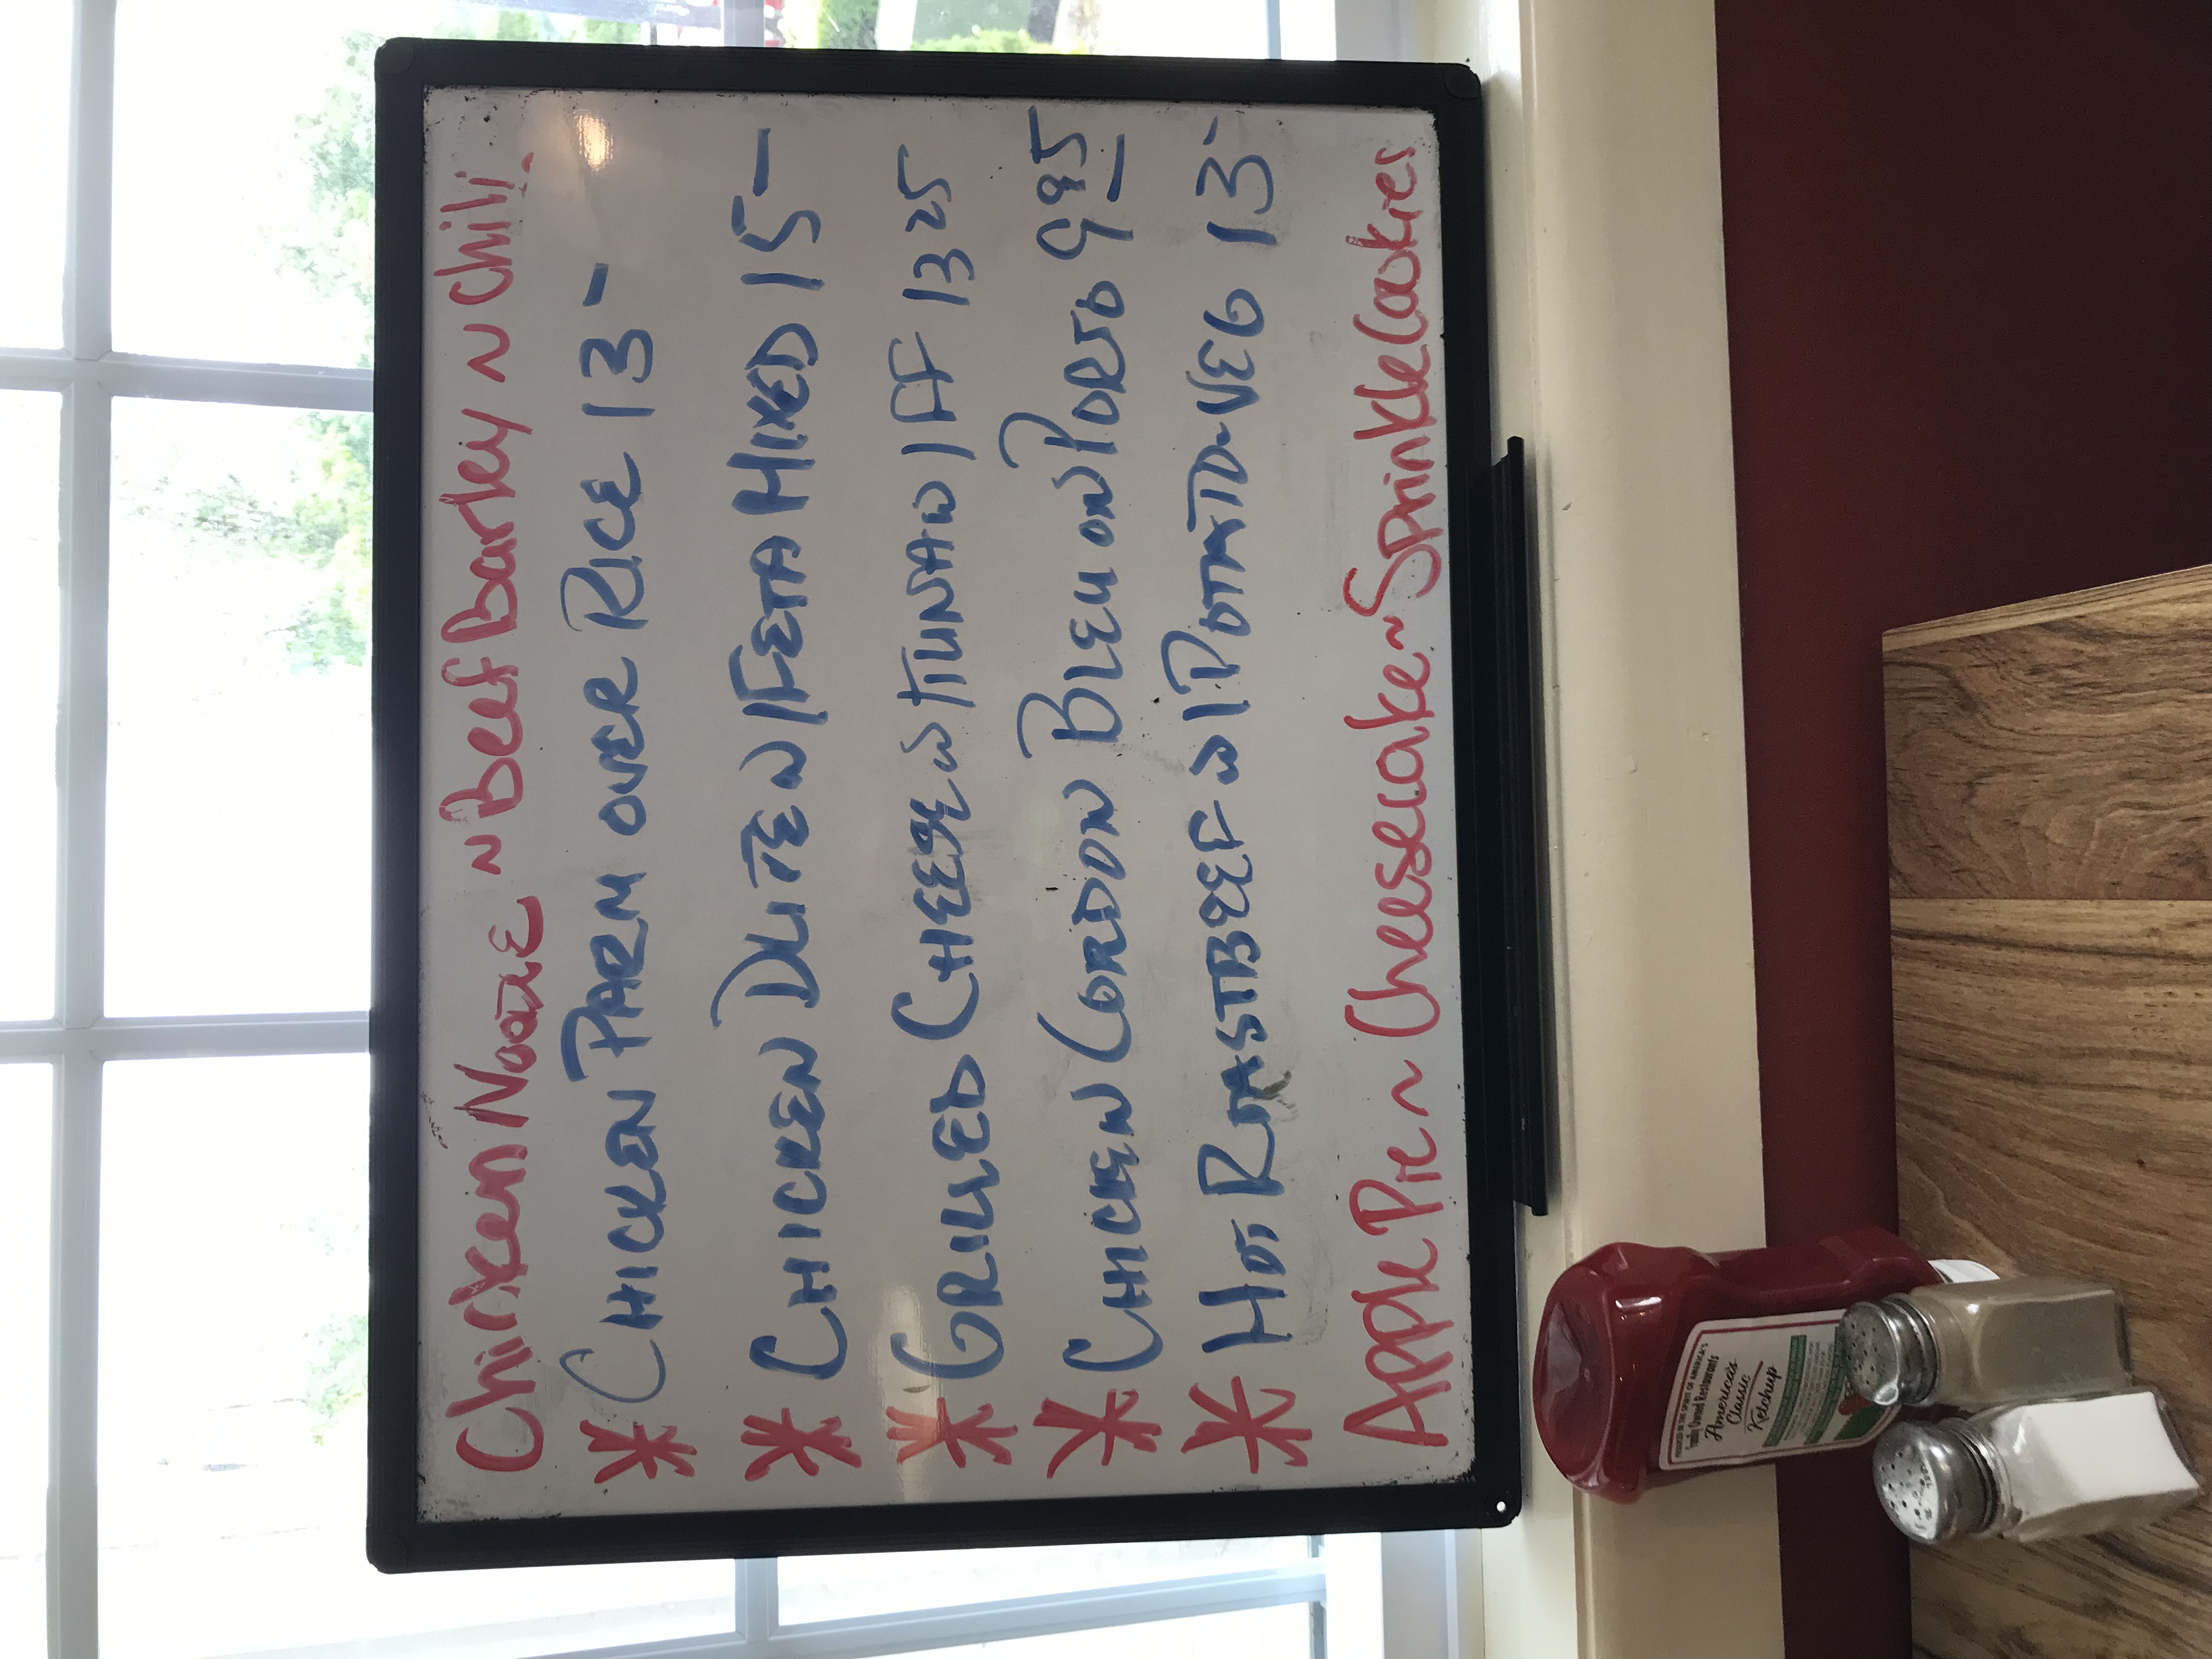 Chicken Noodle ~ Beef Barley ~ Chili
* CHICKEN PARM OVER RICE 13-
* CHICKEN DLITE W/FETA MIXED 15-
* GRILLED CHEESE W/TUNA W/FF 13 25
* CHICKEN CORDON BLEU ON PORTO 9 95
* HOT ROASTBEEF W/POTATO-VEG 13-
Apple Pie ~ Cheesecake ~ Sprinkle Cookies
Family Owned Restaurants
America's
Classic
Ketchup